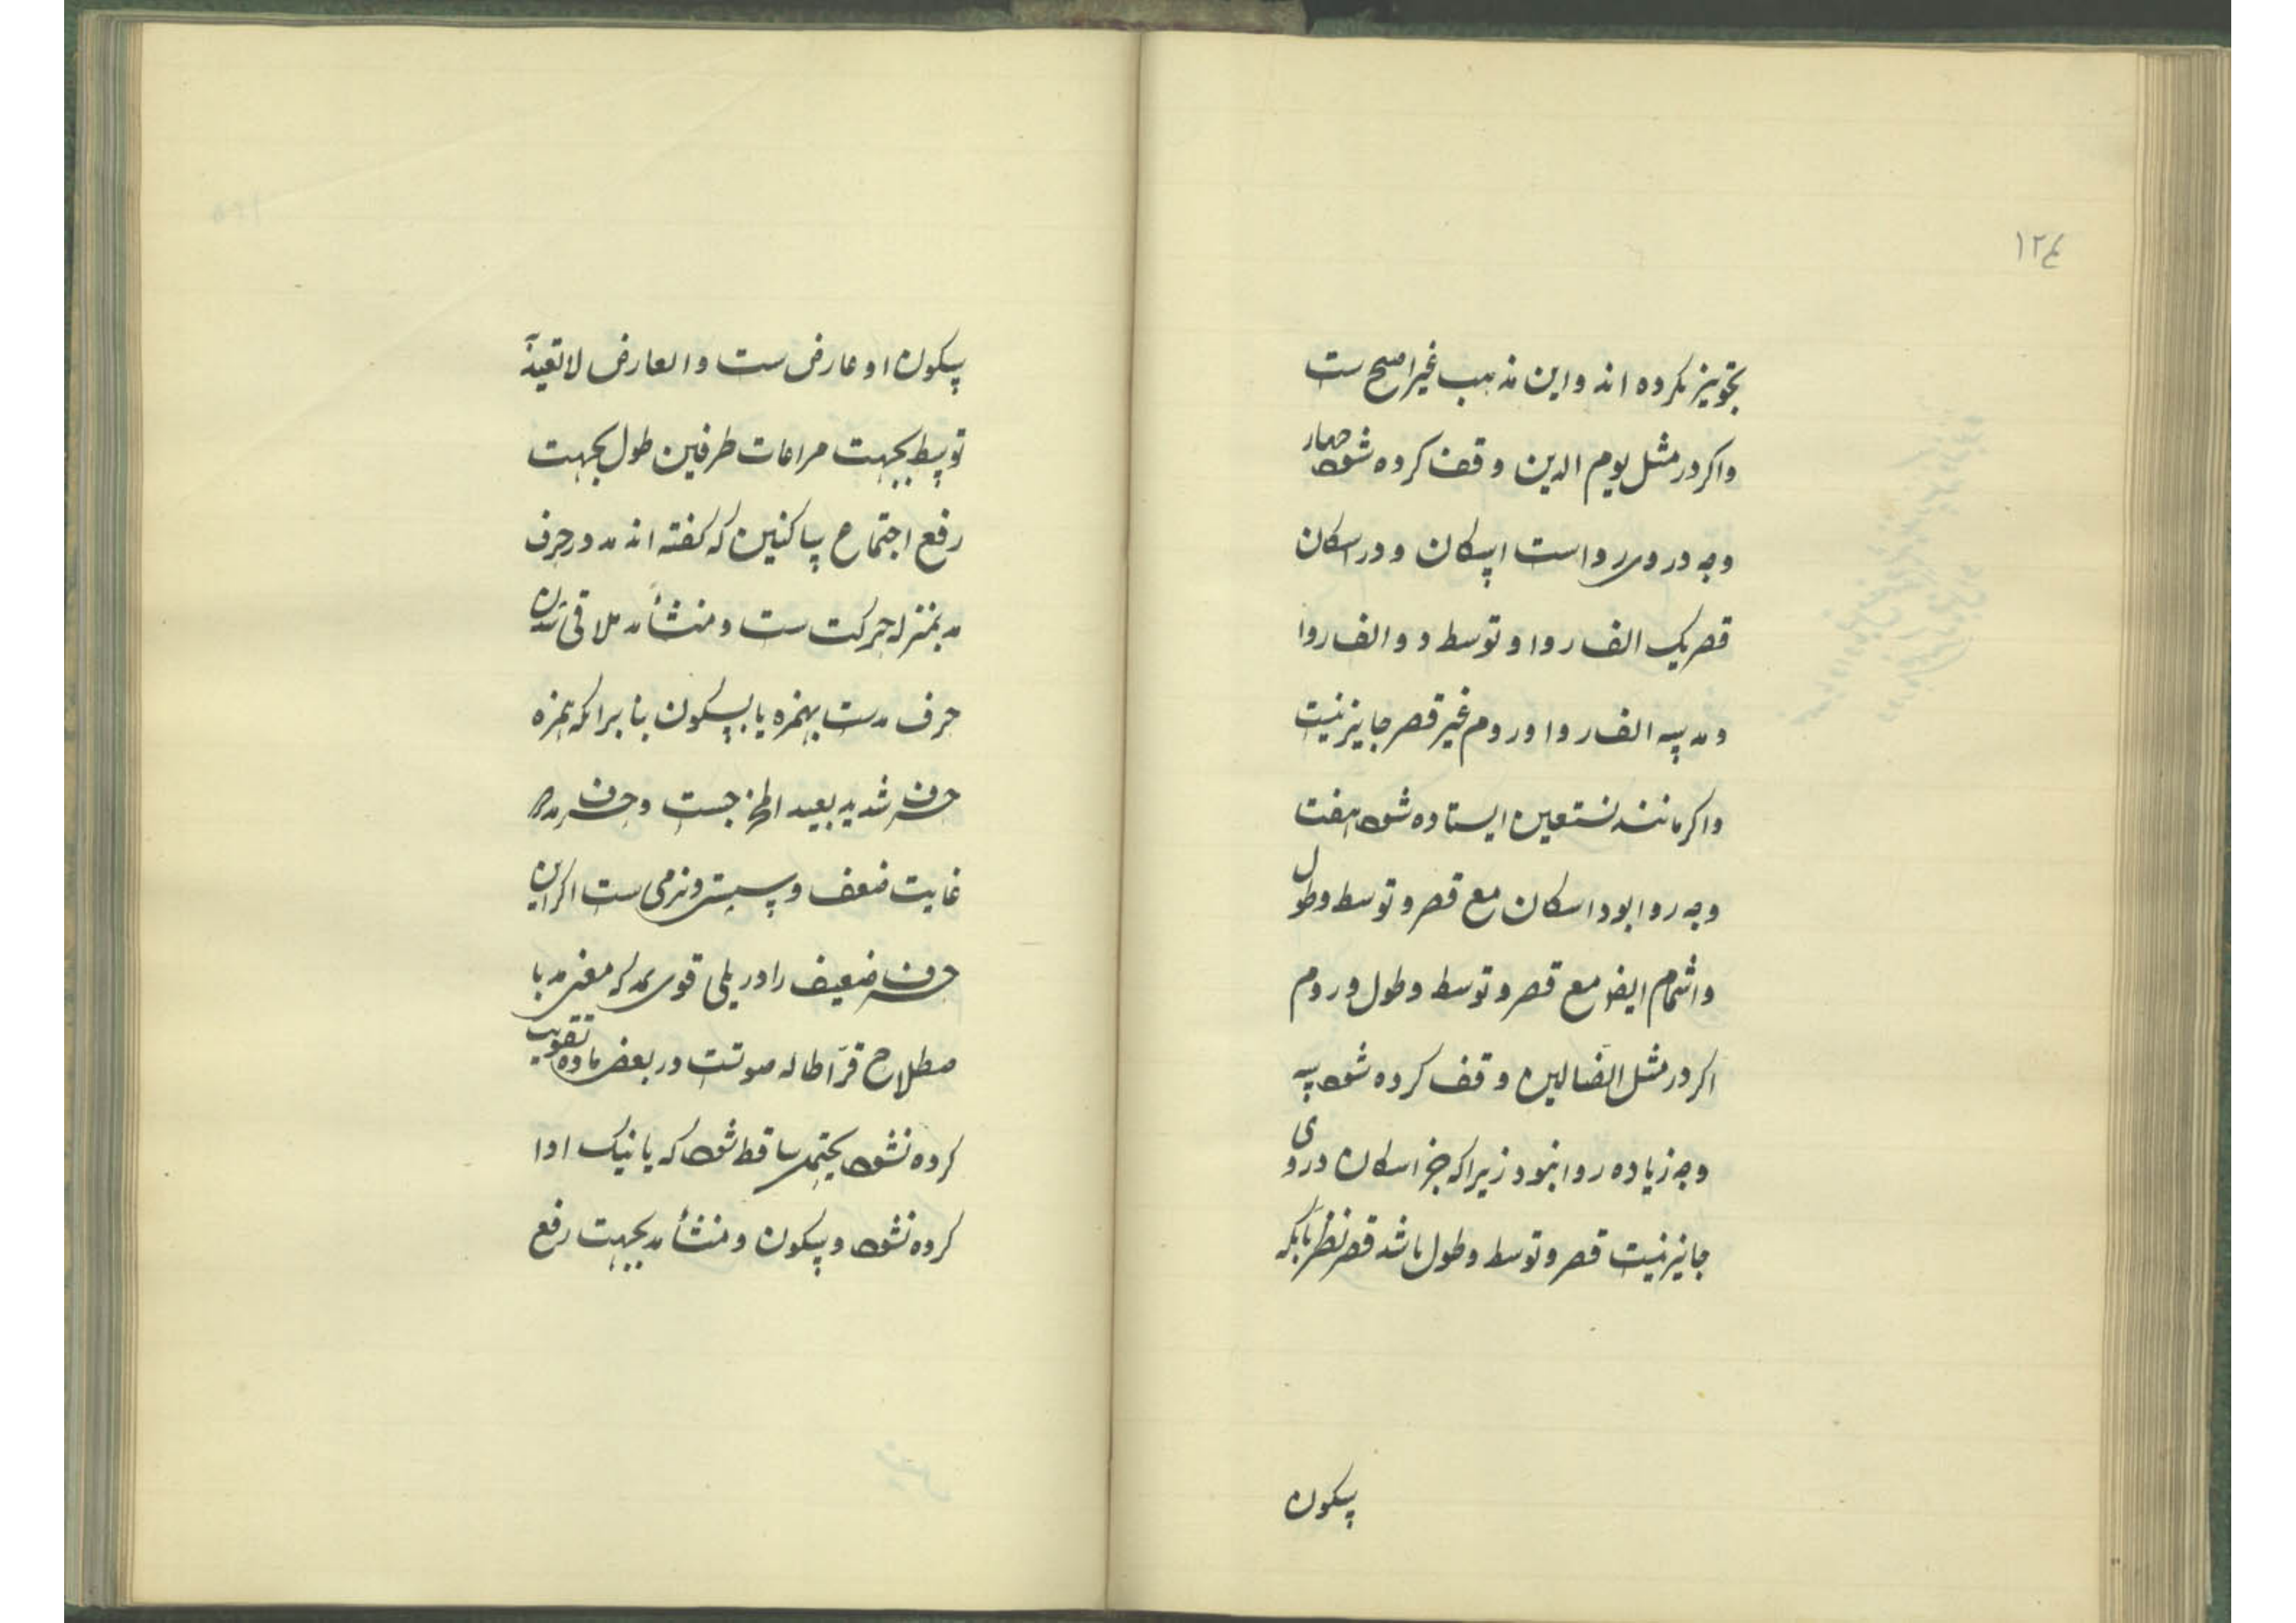 ۱۲۴
تجویز نکرده اند و این مذهب غیر اصح ست
و اکر در مثل یوم الدین وقف کرده شود چهار
وجه در وی رواست اسکان و در اسکان
قصر یک الف روا و توسط دو الف روا
و مد سه الف روا و روم غیر قصر جایز نیست
و اکر مانند نستعین ایستاده شود هفت
وجه روا بود اسکان مع قصر و توسط و طول
و اشمام ایضا مع قصر و توسط و طول و روم
اکر در مثل الضالین وقف کرده شود سه
وجه زیاده روا نبود زیرا که جز اسکان در وی
جایز نیست قصر و توسط و طول باشد قصر نظر بآنکه
سکون
سکون او عارض ست و العارض لا تعید
توسط بجهت مراعات طرفین طول بجهت
رفع اجتماع ساکنین که کفته اند مد در حرف
مد بمنزله حرکت ست و منشأ مد ملاقی شدن
حرف مدست بهمزه یا بسکون بنا بر آنکه همزه
حرف شدید بعید المخرجست و حرف مد در
غایت ضعف و سستی و نرمی ست اکر این
حرف ضعیف را در پلی قوی مد که معنی مد با
صطلاح قرّا طاله صوتست در بعض ماده تقویت
کرده نشود یحتمل ساقط شود که یا نیک ادا
کرده نشود و سکون و منشأ مد بجهت رفع